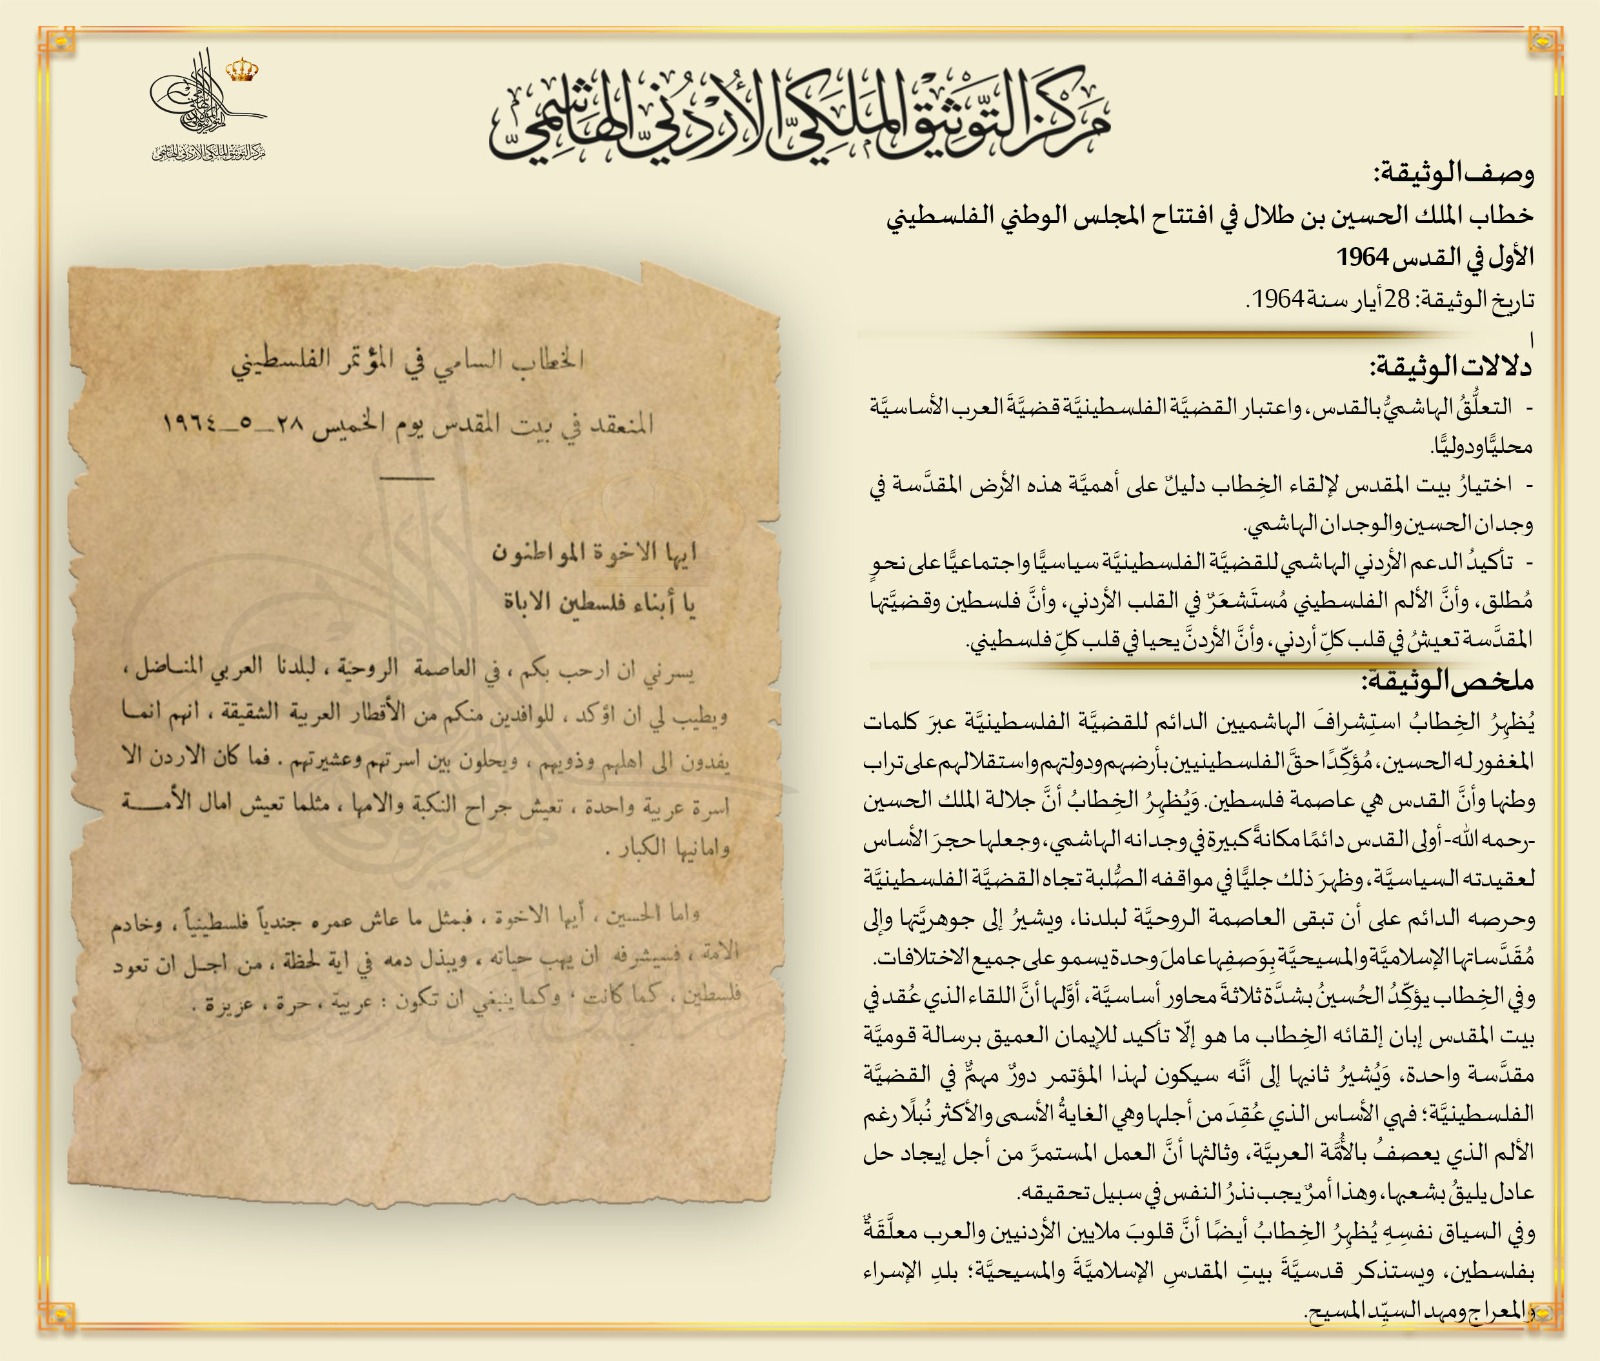 مركز التوثيق الملكي الأردني الهاشمي
مَركَز التّوثيق المَلَكيّ الأُردُنيّ الهَاشِميّ
وصف الوثيقة:
خطاب الملك الحسين بن طلال في افتتاح المجلس الوطني الفلسطيني
الأول في القدس 1964
تاريخ الوثيقة: 28 أيار سنة 1964.
ا
دلالات الوثيقة:
- التعلُّقُ الهاشميُّ بالقدس، واعتبار القضيَّة الفلسطينيَّة قضيَّةَ العرب الأساسيَّة
محليًّا ودوليًّا.
- اختيارُ بيت المقدس لإلقاء الخِطاب دليلٌ على أهميَّة هذه الأرض المقدَّسة في
وجدان الحسين والوجدان الهاشمي.
- تأكيدُ الدعم الأردني الهاشمي للقضيَّة الفلسطينيَّة سياسيًّا واجتماعيًّا على نحوٍ
مُطلق، وأنَّ الألم الفلسطيني مُستَشعَرٌ في القلب الأردني، وأنَّ فلسطين وقضيَّتها
المقدَّسة تعيشُ في قلب كلِّ أردني، وأنَّ الأردنَّ يحيا في قلب كلِّ فلسطيني.
ملخص الوثيقة:
يُظهِرُ الخِطابُ استِشرافَ الهاشميين الدائم للقضيَّة الفلسطينيَّة عبرَ كلمات
المغفور له الحسين، مُؤكِّدًا حقَّ الفلسطينيين بأرضهم ودولتهم واستقلالهم على تراب
وطنها وأنَّ القدس هي عاصمة فلسطين. وَيُظهِرُ الخِطابُ أنَّ جلالة الملك الحسين
-رحمه الله- أولى القدس دائمًا مكانةً كبيرة في وجدانه الهاشمي، وجعلها حجرَ الأساس
لعقيدته السياسيَّة، وظهرَ ذلك جليًّا في مواقفه الصُّلبة تجاه القضيَّة الفلسطينيَّة
وحرصه الدائم على أن تبقى العاصمة الروحيَّة لبلدنا، ويشيرُ إلى جوهريَّتها وإلى
مُقَدَّساتها الإسلاميَّة والمسيحيَّة بِوَصفِها عاملَ وحدة يسمو على جميع الاختلافات.
وفي الخِطاب يؤكِّدُ الحُسينُ بشدَّة ثلاثةَ محاور أساسيَّة، أوَّلها أنَّ اللقاء الذي عُقد في
بيت المقدس إبان إلقائه الخِطاب ما هو إلّا تأكيد للإيمان العميق برسالة قوميَّة
مقدَّسة واحدة، وَيُشيرُ ثانيها إلى أنَّه سيكون لهذا المؤتمر دورٌ مهمٌّ في القضيَّة
الفلسطينيَّة؛ فهي الأساس الذي عُقِدَ من أجلها وهي الغايةُ الأسمى والأكثر نُبلًا رغم
الألم الذي يعصفُ بالأُمَّة العربيَّة، وثالثها أنَّ العمل المستمرَّ من أجل إيجاد حل
عادل يليقُ بشعبها، وهذا أمرٌ يجب نذرُ النفس في سبيل تحقيقه.
وفي السياق نفسِهِ يُظهِرُ الخِطابُ أيضًا أنَّ قلوبَ ملايين الأردنيين والعرب معلَّقَةٌ
بفلسطين، ويستذكر قدسيَّةَ بيتِ المقدسِ الإسلاميَّةَ والمسيحيَّة؛ بلدِ الإسراء
والمعراج ومهد السيِّد المسيح.
الخطاب السامي في المؤتمر الفلسطيني
المنعقد في بيت المقدس يوم الخميس ٢٨_٥_١٩٦٤
ايها الاخوة المواطنون
يا أبناء فلسطين الاباة
يسرني ان ارحب بكم ، في العاصمة الروحية ، لبلدنا العربي المناضل ،
ويطيب لي ان اؤكد ، للوافدين منكم من الأقطار العربية الشقيقة ، انهم انما
يفدون الى اهلهم وذويهم ، ويحلون بين اسرتهم وعشيرتهم . فما كان الاردن الا
اسرة عربية واحدة ، تعيش جراح النكبة والامها ، مثلما تعيش امال الأمة
وامانيها الكبار .
واما الحسين ، أيها الاخوة ، فبمثل ما عاش عمره جندياً فلسطينياً ، وخادم
الامة ، فسيشرفه ان يهب حياته ، ويبذل دمه في اية لحظة ، من اجل ان تعود
فلسطين ، كما كانت ، وكما ينبغي ان تكون : عربية ، حرة ، عزيزة .